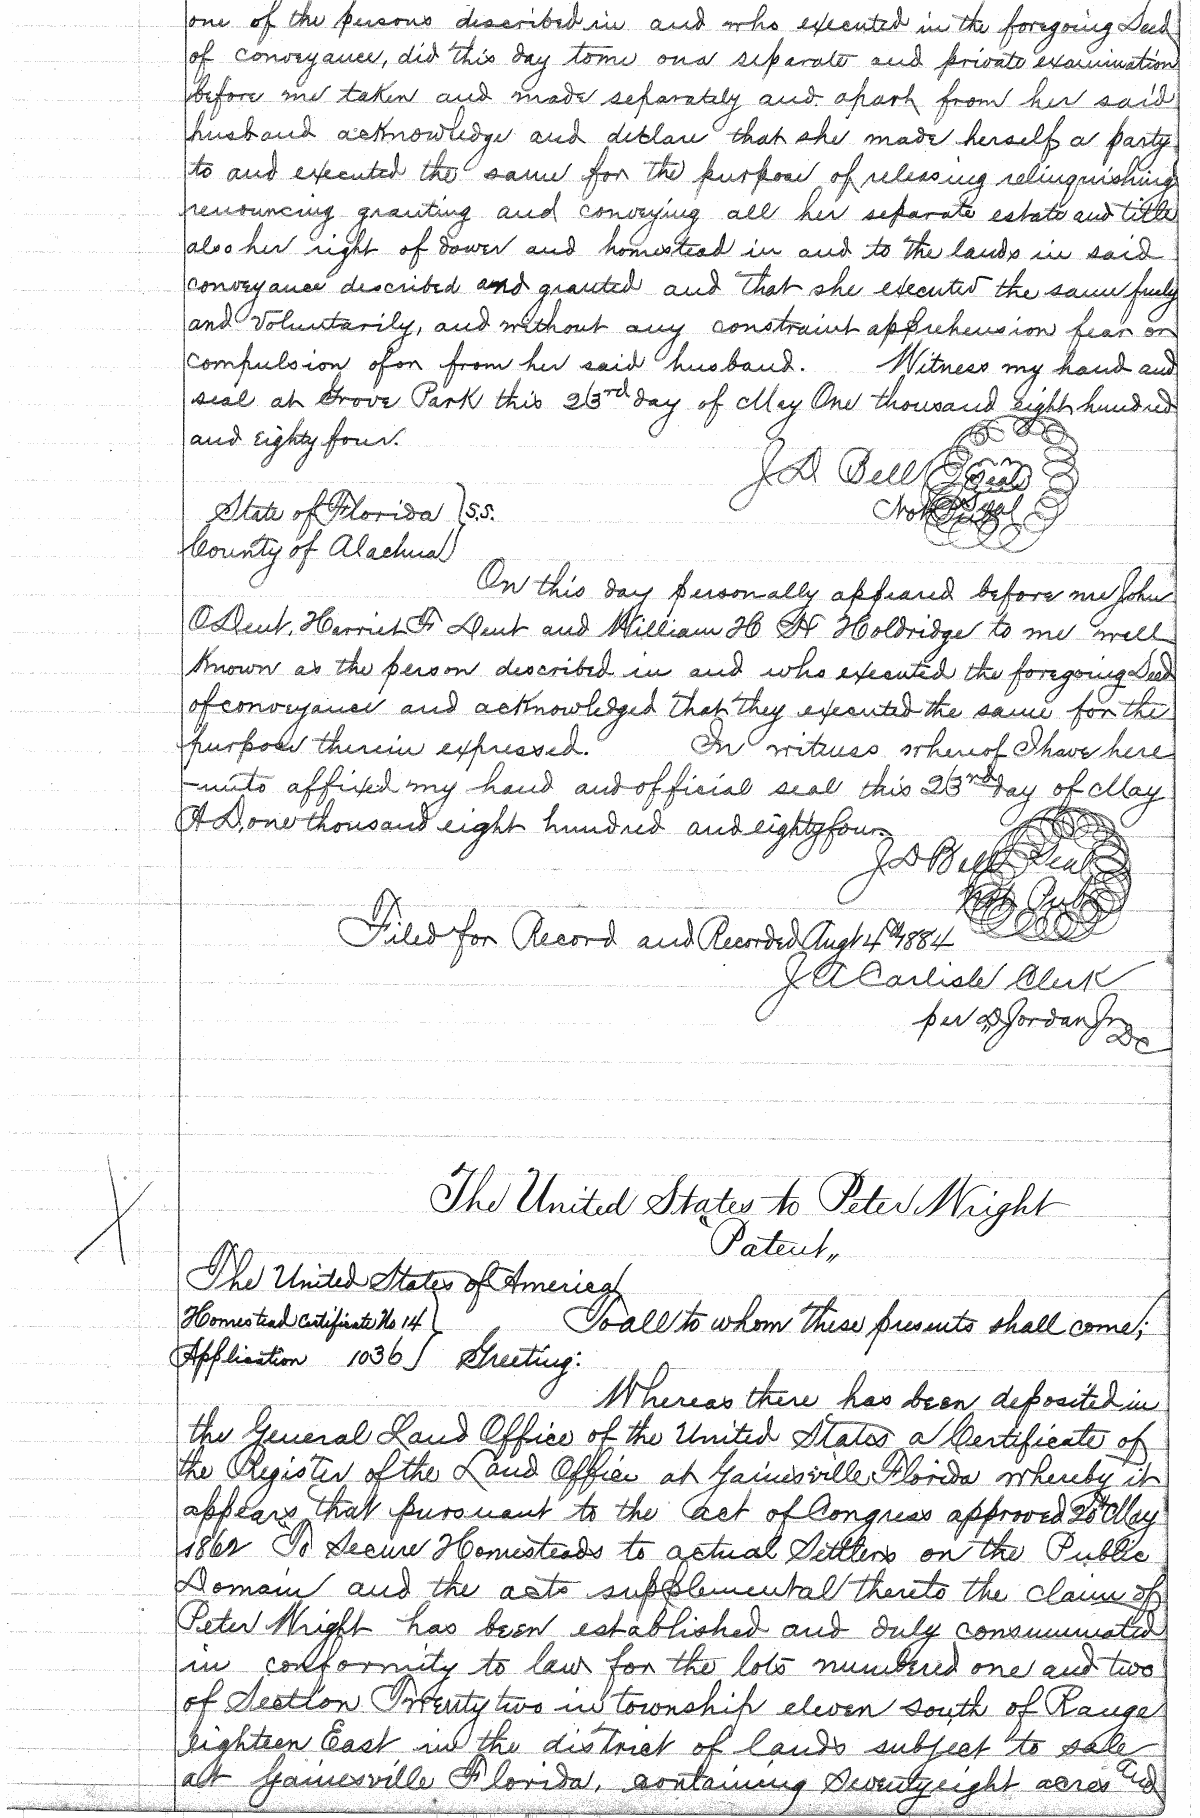 one of the persons described in and who executed in the foregoing Deed
of conveyance, did this day to me on a separate and private examination
before me taken and made separately and apart from her said
husband acknowledge and declare that she made herself a party
to and executed the same for the purpose of releasing relinquishing
renouncing granting and conveying all her separate estate and title
also her right of dower and homestead in and to the lands in said
conveyance described and granted and that she executed the same freely
and voluntarily, and without any constraint apprehension fear or
compulsion of or from her said husband. Witness my hand and
seal at Grove Park this 23rd day of May One thousand eight hundred
and eighty four.
J D Bell Seal
Not Pub Seal
State of Florida } S.S.
County of Alachua
On this day personally appeared before me John
O Dent, Harriet F Dent and William H H Holdridge to me well
known as the person described in and who executed the foregoing Deed
of conveyance and acknowledged that they executed the same for the
purpose therein expressed. In witness whereof I have here
-unto affixed my hand and official seal this 23rd day of May
A D, one thousand eight hundred and eighty four.
J D Bell Seal
Not Pub
Filed for Record and Recorded Augt 4th 1884
J A Carlisle Clerk
per D Jordan Jr
DC
The United States to Peter Wright
"Patent„
The United States of America
Homestead Certificate No 14 } To all to whom these presents shall come;
Application 1036 } Greeting:
Whereas there has been deposited in
the General Land Office of the United States a Certificate of
the Register of the Land Office at Gainesville Florida whereby it
appears that pursuant to the act of Congress approved 20th May
1862 "To Secure Homesteads to actual Settlers on the Public
Domain and the acts supplemental thereto the claim of
Peter Wright has been established and duly consummated
in conformity to law for the lots numbered one and two
of Section Twenty two in township eleven south of Range
eighteen East in the district of lands subject to sale
at Gainesville Florida, containing Seventy eight acres and